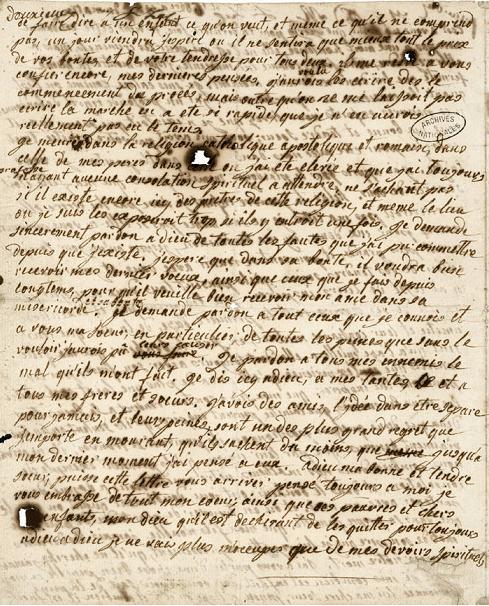 deuxieme
de faire dire a un enfant ce qu'on veut, et meme ce qu'il ne comprend
pas, un jour viendra j'espere ou il ne sentira que mieux tout le prix
de vos bontés et de votre tendresse pour tous deux. il me reste a vous
confier encore, mes dernieres pensées, j'aurois voulu les ecrire des le
commencement du procès, mais outre qu'on ne me laissoit pas
ecrire la marche en a été si rapide, que je n'en aurois
reellement pas eu le tems.
je meurs dans la religion catholique apostolique et romaine, dans
celle de mes peres, dans ou j'ai été elevée et que j'ai toujours
professée
n'ayant aucune consolation spirituel a attendre, ne sachant pas
s'il existe encore ici des pretres de cette religion, et meme le lieu
ou je suis les exposeroit trop s'ils y entroit une fois. je demande
sincerement pardon a dieu de toutes les fautes que j'ai pu commettre
depuis que j'existe. j'espere que dans sa bonté, il voudra bien
recevoir mes derniers voeux, ainsi que ceux que je fais depuis
longtems, pour qu'il veuille bien recevoir mon ame dans sa
misericorde et sa bonté. je demande pardon a tout ceux que je connois et
a vous ma soeur en particulier de toutes les peines que sans le
vouloir j'aurois pu leurs causer. je pardonne a tous mes ennemis le
mal qu'ils m'ont fait. je dis ici adieu, a mes tantes et a
tous mes freres et soeurs. j'avois des amis, l'idée d'en etre separé
pour jamais et leurs peines, sont un des plus grand regret que
j'emporte en mourant, qu'ils sachent du moins, que jusqu'a
mon dernier moment j'ai pensé a eux. adieu ma bonne et tendre
soeur, puisse cette lettre vous arriver. pensé toujours a moi je
vous embrasse de tout mon coeur, ainsi que ces pauvres et chers
enfants, mon dieu qu'il est dechirant de les quitter pour toujours
adieu, adieu je ne vais plus m'occuper que de mes devoirs spirituels
ARCHIVES
NATIONALES